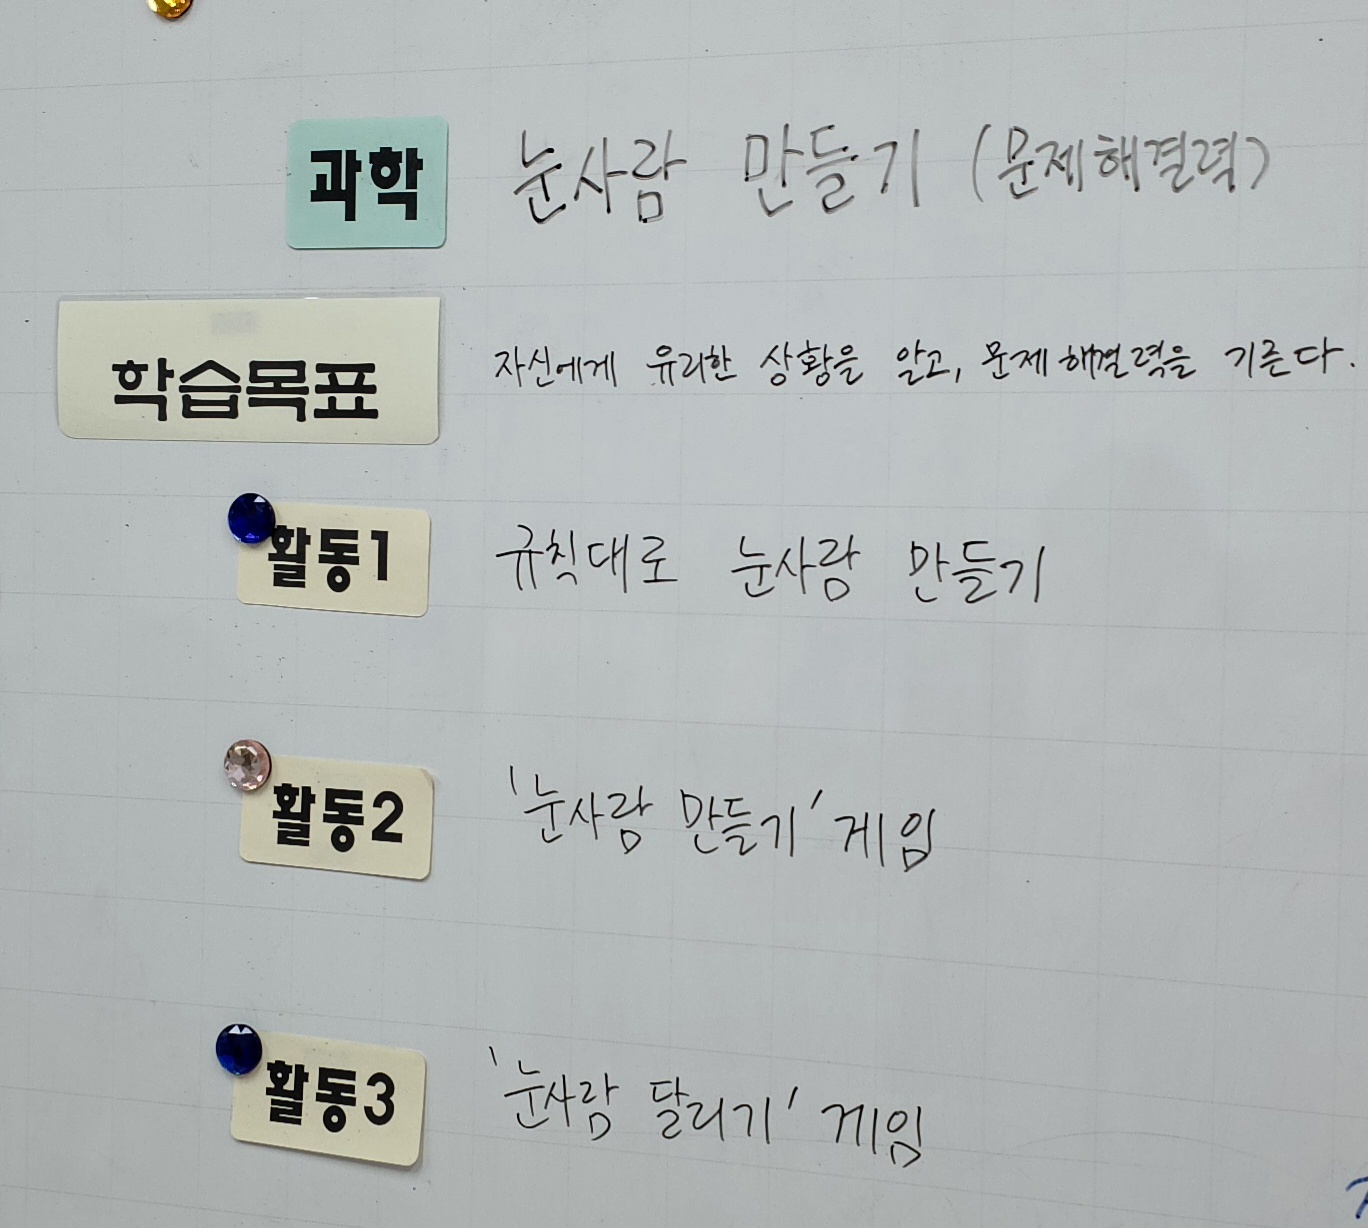 과학 눈사람 만들기 (문제해결력)
학습목표 자신에게 유리한 상황을 알고, 문제해결력을 기른다.
활동1 규칙대로 눈사람 만들기
활동2 '눈사람 만들기' 게임
활동3 '눈사람 달리기' 게임